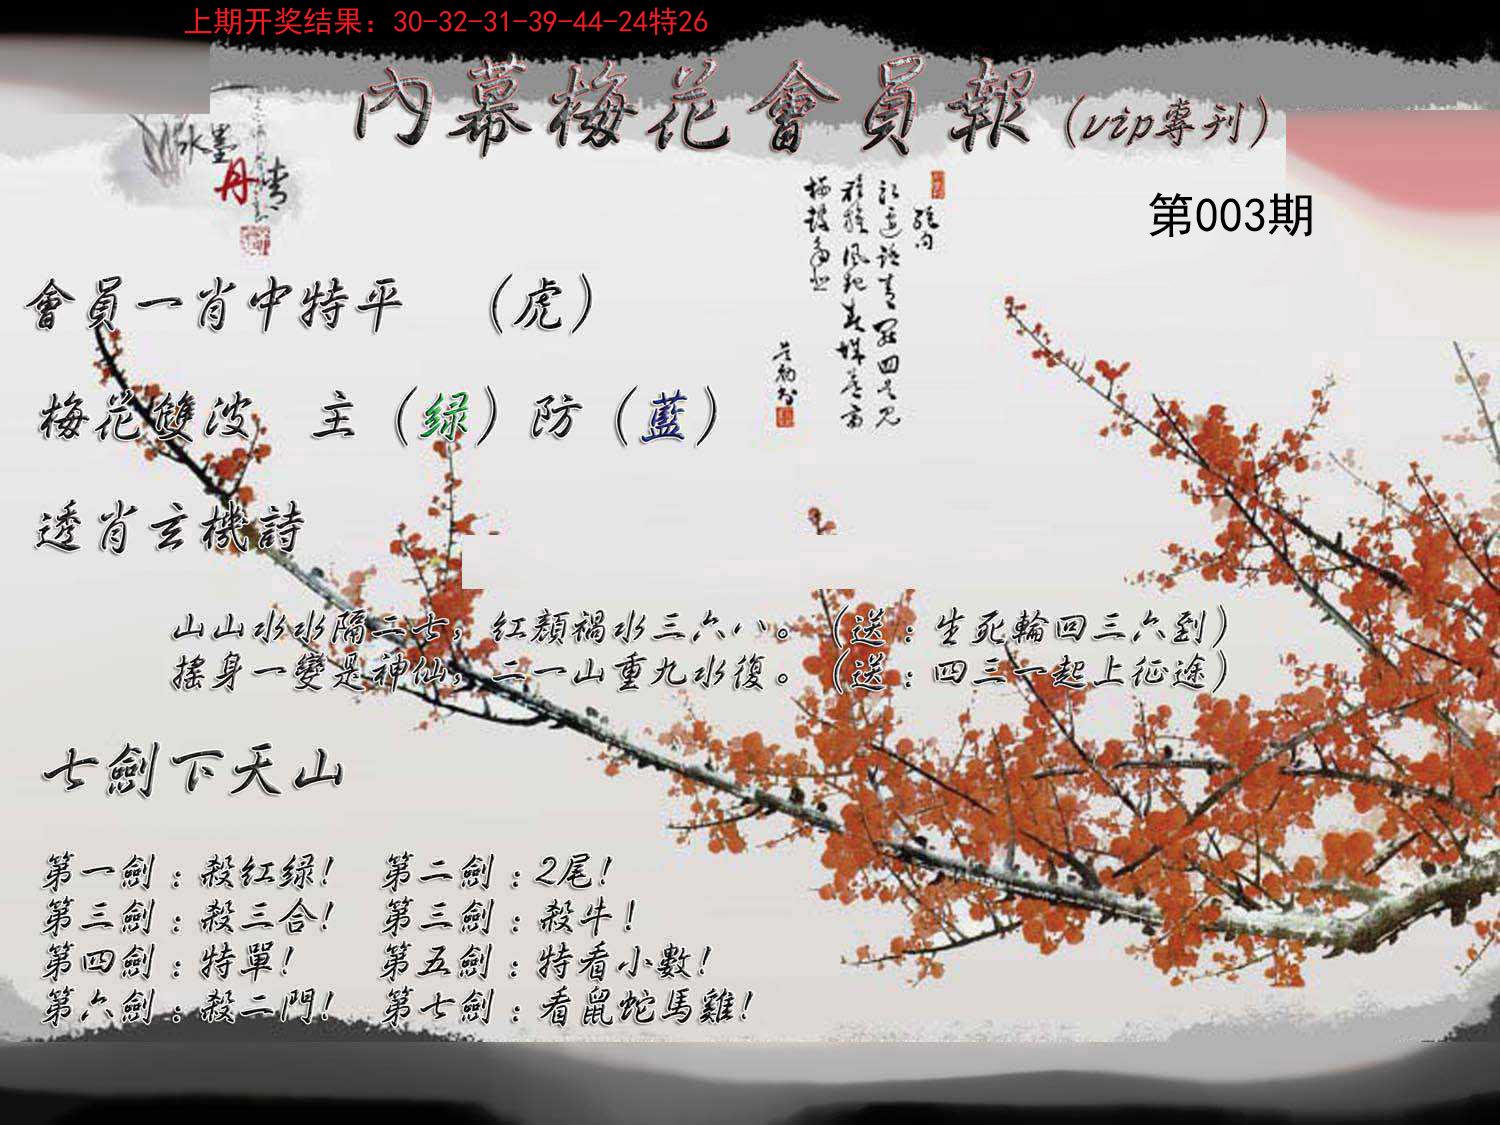 上期开奖结果：30-32-31-39-44-24特26
內幕梅花會員報(vip專刊)
水墨
丹青
第003期
會員一肖中特平 (虎)
梅花雙波 主(绿)防(藍)
透肖玄機詩
山山水水隔二七，红顏禍水三六八。(送：生死輪回三六到)
搖身一變是神仙，二一山重九水復。(送：四三一起上征途)
七劍下天山
第一劍：殺红绿! 第二劍：2尾!
第三劍：殺三合! 第三劍：殺牛!
第四劍：特單! 第五劍：特看小數!
第六劍：殺二門! 第七劍：看鼠蛇馬雞!